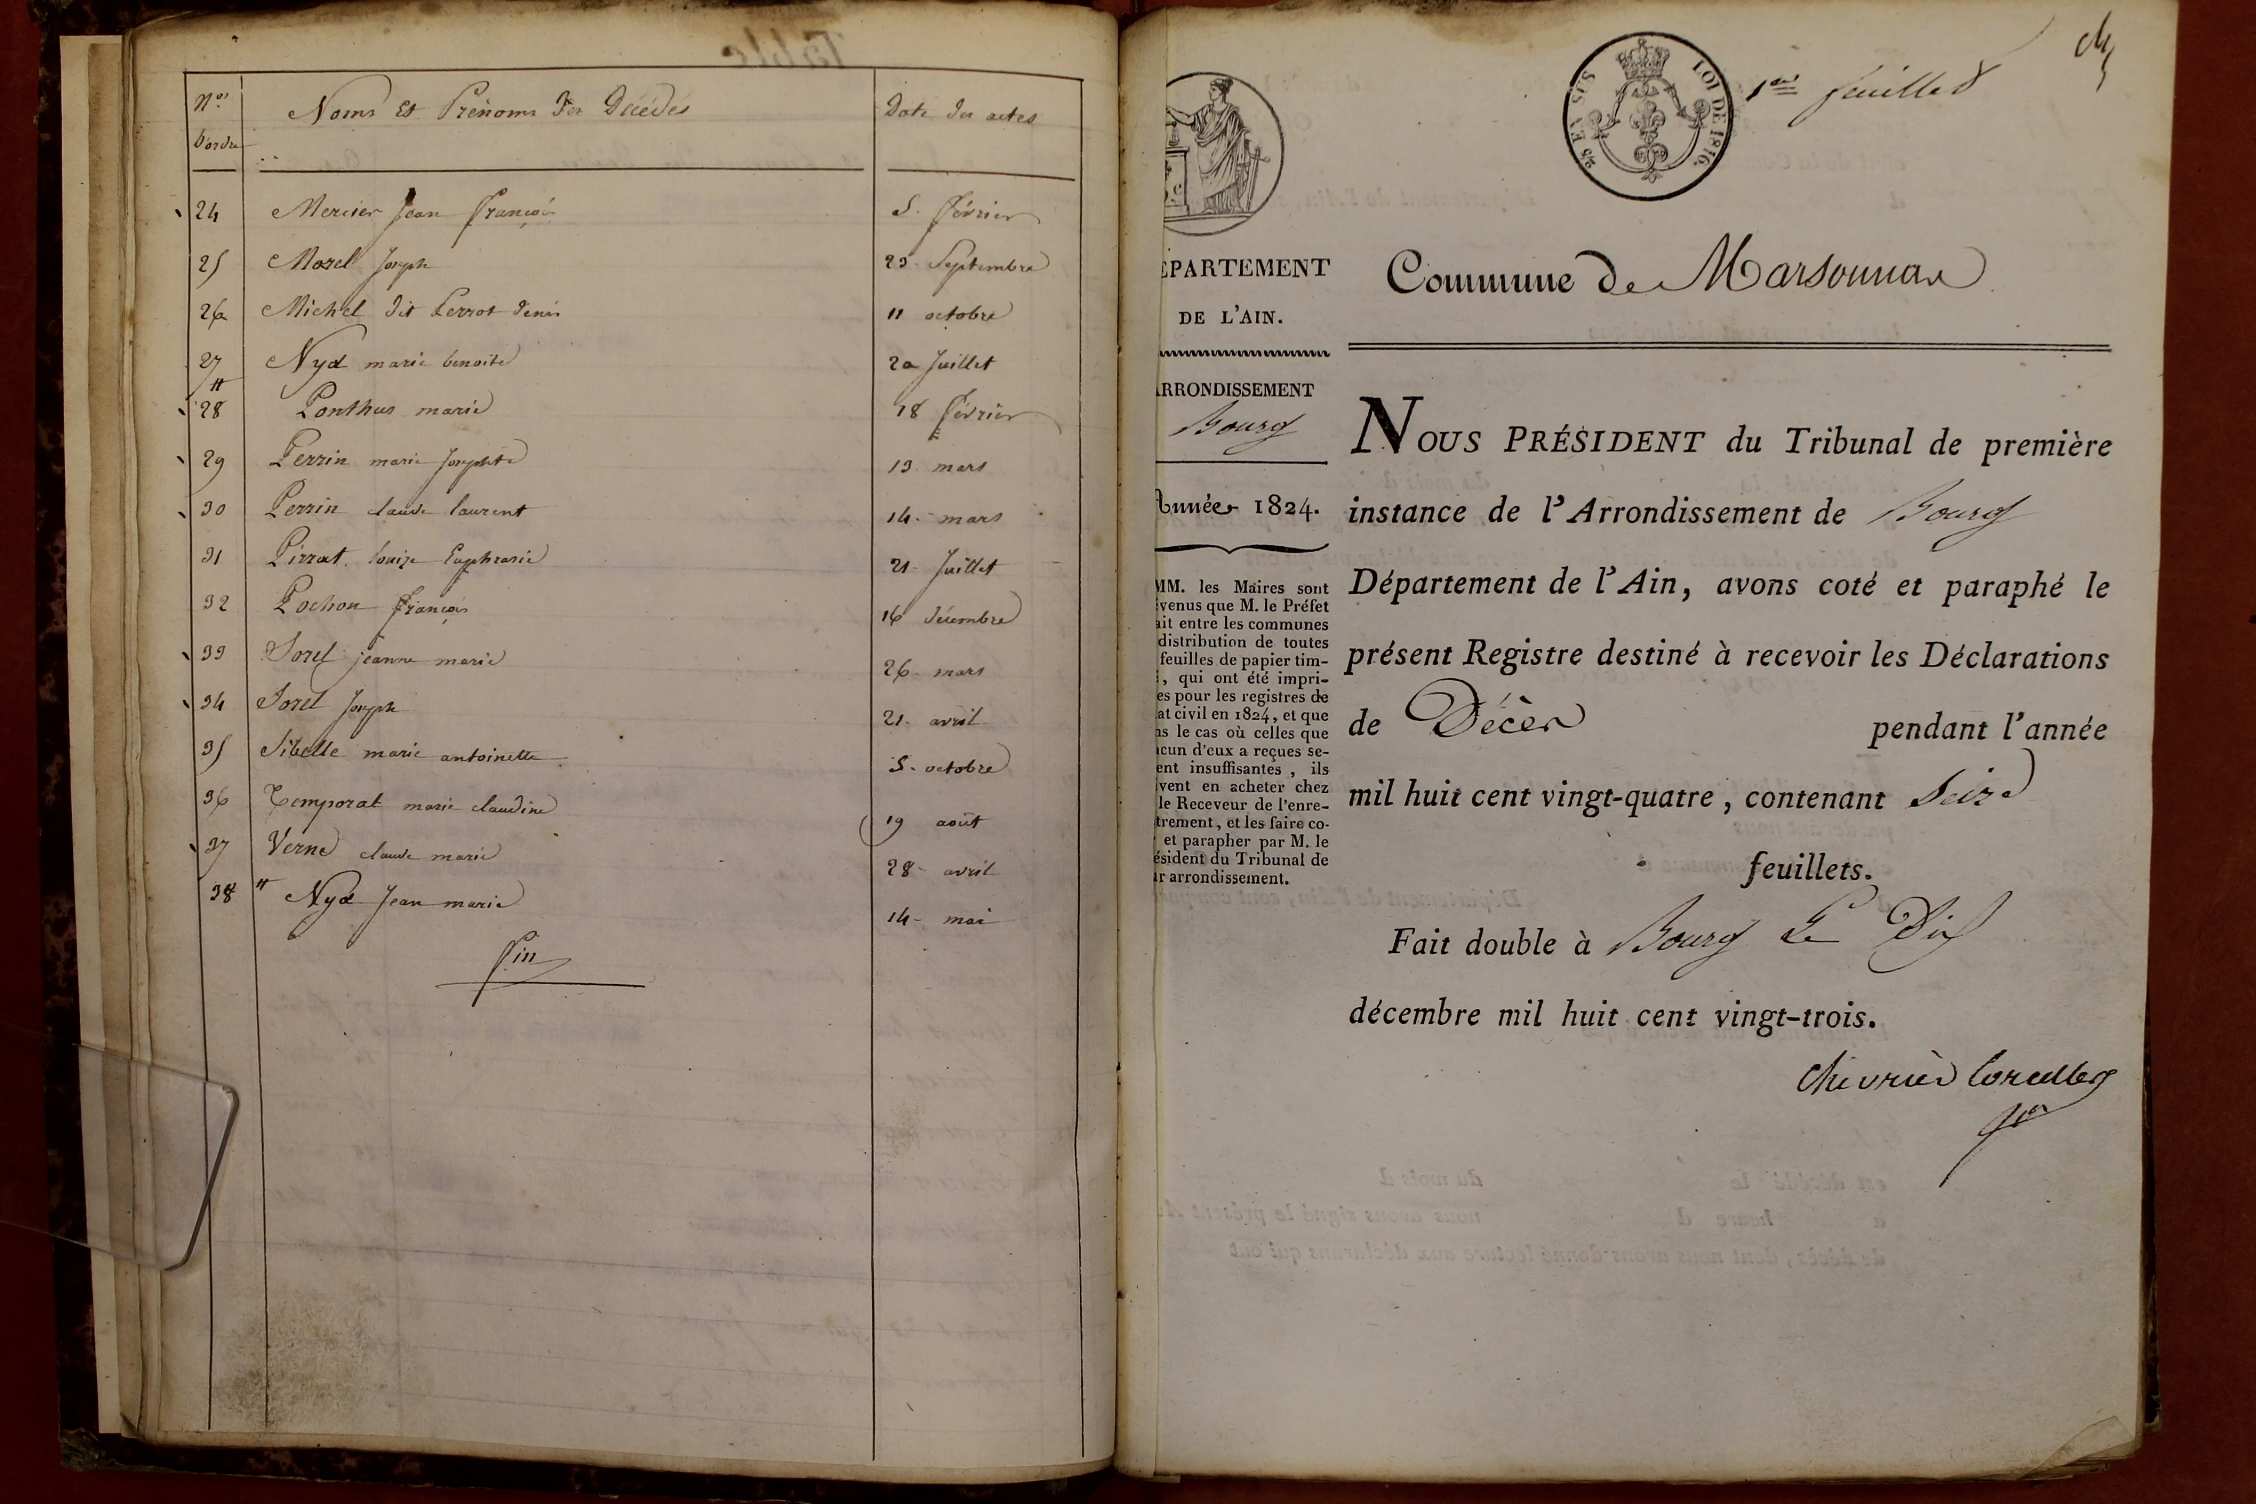 Nos Noms Et Prénoms des Décédés Date des actes
d'ordre
24 Mercier Jean François 5. février
25 Morel Joseph 23. Septembre
26 Michel dit Perrot denis 11 octobre
27 Nyd marie benoite 20 Juillet
28 Ponthus marie 18 février
29 Perrin marie Josephte 13. mars
30 Perrin claude laurent 14. mars
31 Pirrat. louize Euphrasie 21. Juillet
32 Pochon françois 16 décembre
33 Sorel jeanne marie 26. mars
34 Sorel Joseph 21. avril
35 Sibelle marie antoinette 5. octobre
36 Temporal marie claudine 19 août
37 Verne claude marie 28. avril
38 Nyd Jean marie 14. mai
fin
25 EN SUS LOI DE 1816.
1er feuillet
ÉPARTEMENT
DE L'AIN.
ARRONDISSEMENT
Bourg
Année 1824.
MM. les Maires sont
évenus que M. le Préfet
ait entre les communes
distribution de toutes
feuilles de papier tim-
, qui ont été impri-
es pour les registres de
at civil en 1824, et que
ns le cas où celles que
acun d'eux a reçues se-
ent insuffisantes, ils
ivent en acheter chez
le Receveur de l'enre-
trement, et les faire co-
et parapher par M. le
ésident du Tribunal de
ur arrondissement.
Commune de Marsonnax
NOUS PRÉSIDENT du Tribunal de première
instance de l'Arrondissement de Bourg
Département de l'Ain, avons coté et paraphé le
présent Registre destiné à recevoir les Déclarations
de Décès pendant l'année
mil huit cent vingt-quatre, contenant Seize
feuillets.
Fait double à Bourg Le Dix
décembre mil huit cent vingt-trois.
Chevrier Corcelles